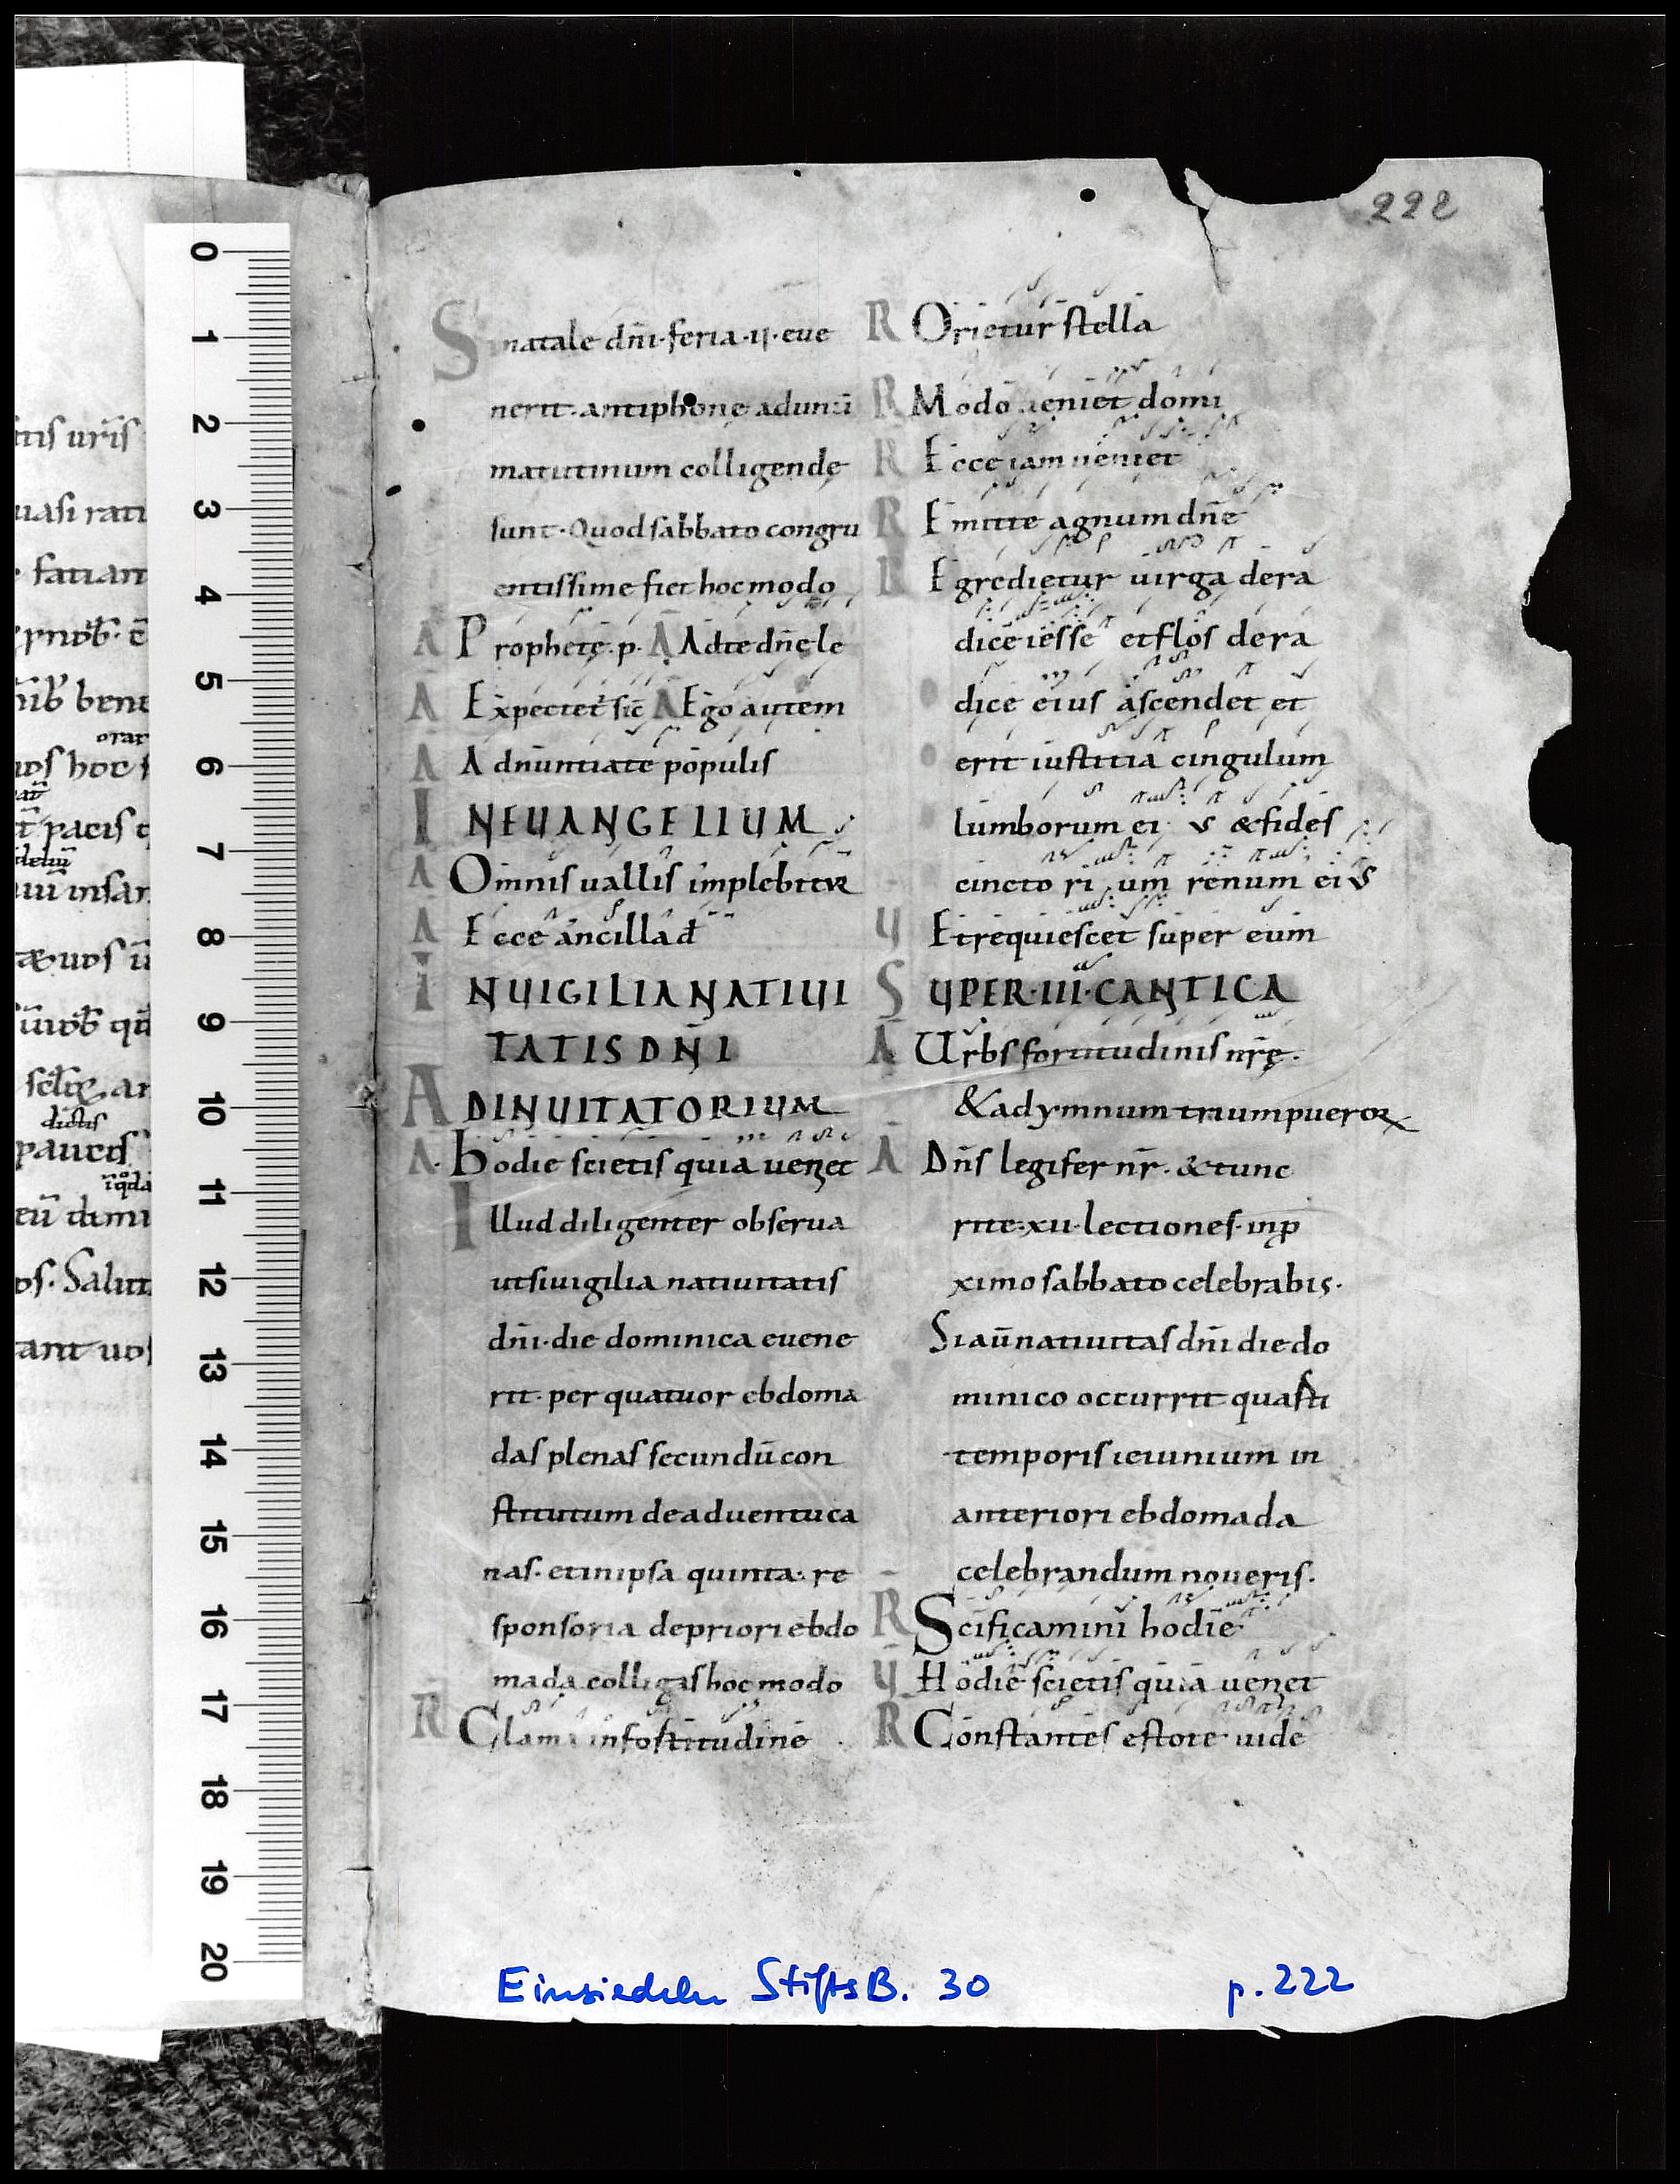 222
S natale dñi·feria·II·eue
nerit·antiphonę adunũ
matutinum colligende
sunt·Quod sabbato congru
entissime fiet hoc modo
A Prophetę p. A Ad te dñe le
A Expectet͛ sič A Ego autem
A Adnuntiate populis
IN EUANGELIUM
A Omnis uallis implebitur
A Ecce ancilla d̄
IN UIGILIA NATIUI
TATIS DÑI
AD INUITATORIUM
A. hodie scietis quia ueniet
Illud diligenter obserua
ut si uigilia natiuitatis
dñi·die dominica euene
rit·per quatuor ebdoma
das plenas secundũ con
stitutum de aduentu ca
nas· et in ipsa quinta· re
sponsoria de priori ebdo
mada colligas hoc modo
R Clama in fortitudine
R Orietur stella
R Modo ueniet domi
R Ecce iam ueniet
R Emitte agnum dñe
R Egredietur uirga de ra
dice iesse et flos de ra
dice eius ascendet et
erit iustitia cingulum
lumborum ei us & fides
cincto ri um renum eius
V Et requiescet super eum
SUPER·III·CANTICA
A Urbs fortitudinis nrę.
& ad ymnum trium pueroꝝ
A Dñs legifer nr̄. & tunc
rite·xii·lectiones· in p̱
ximo sabbato celebrabis.
Si aũ natiuitas dñi die do
minico occurrit quasti
temporis ieiunium in
anteriori ebdomada
celebrandum noueris.
R Scificamini hodie
V Hodie scietis quia ueniet
R Constantes estote uide
0
1
2
3
4
5
6
7
8
9
10
11
12
13
14
15
16
17
18
19
20
Einsiedeln StiftsB. 30 p. 222